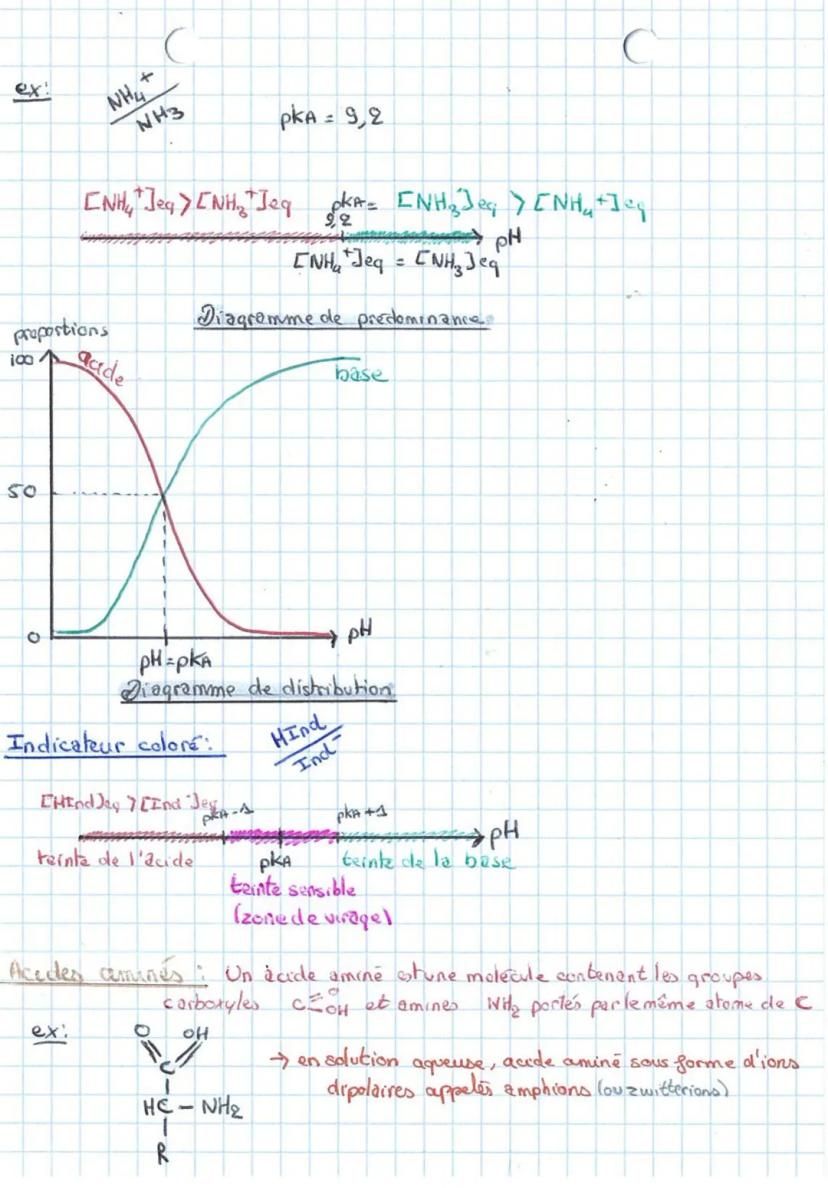 ex: NH₄⁺/NH₃ pkA = 9,2
[NH₄⁺]eq > [NH₃⁺]eq pkA = 9,2 [NH₃]eq > [NH₄⁺]eq
pH
[NH₄⁺]eq = [NH₃]eq
Diagramme de prédominance
proportions
100 acide base
50
0 pH
pH = pkA
Diagramme de distribution
Indicateur coloré: HInd/Ind⁻
[HInd]eq > [Ind⁻]eq pkA-1 pkA+1
pH
teinte de l'acide pkA teinte de la base
teinte sensible
(zone de virage)
Acides aminés : Un acide aminé est une molécule contenant les groupes
carboxyles C=O OH et amines NH₂ portés par le même atome de C
ex: O OH
→ en solution aqueuse, acide aminé sous forme d'ions
C
dipolaires appelés amphions (ou zwitterions)
HC - NH₂
R